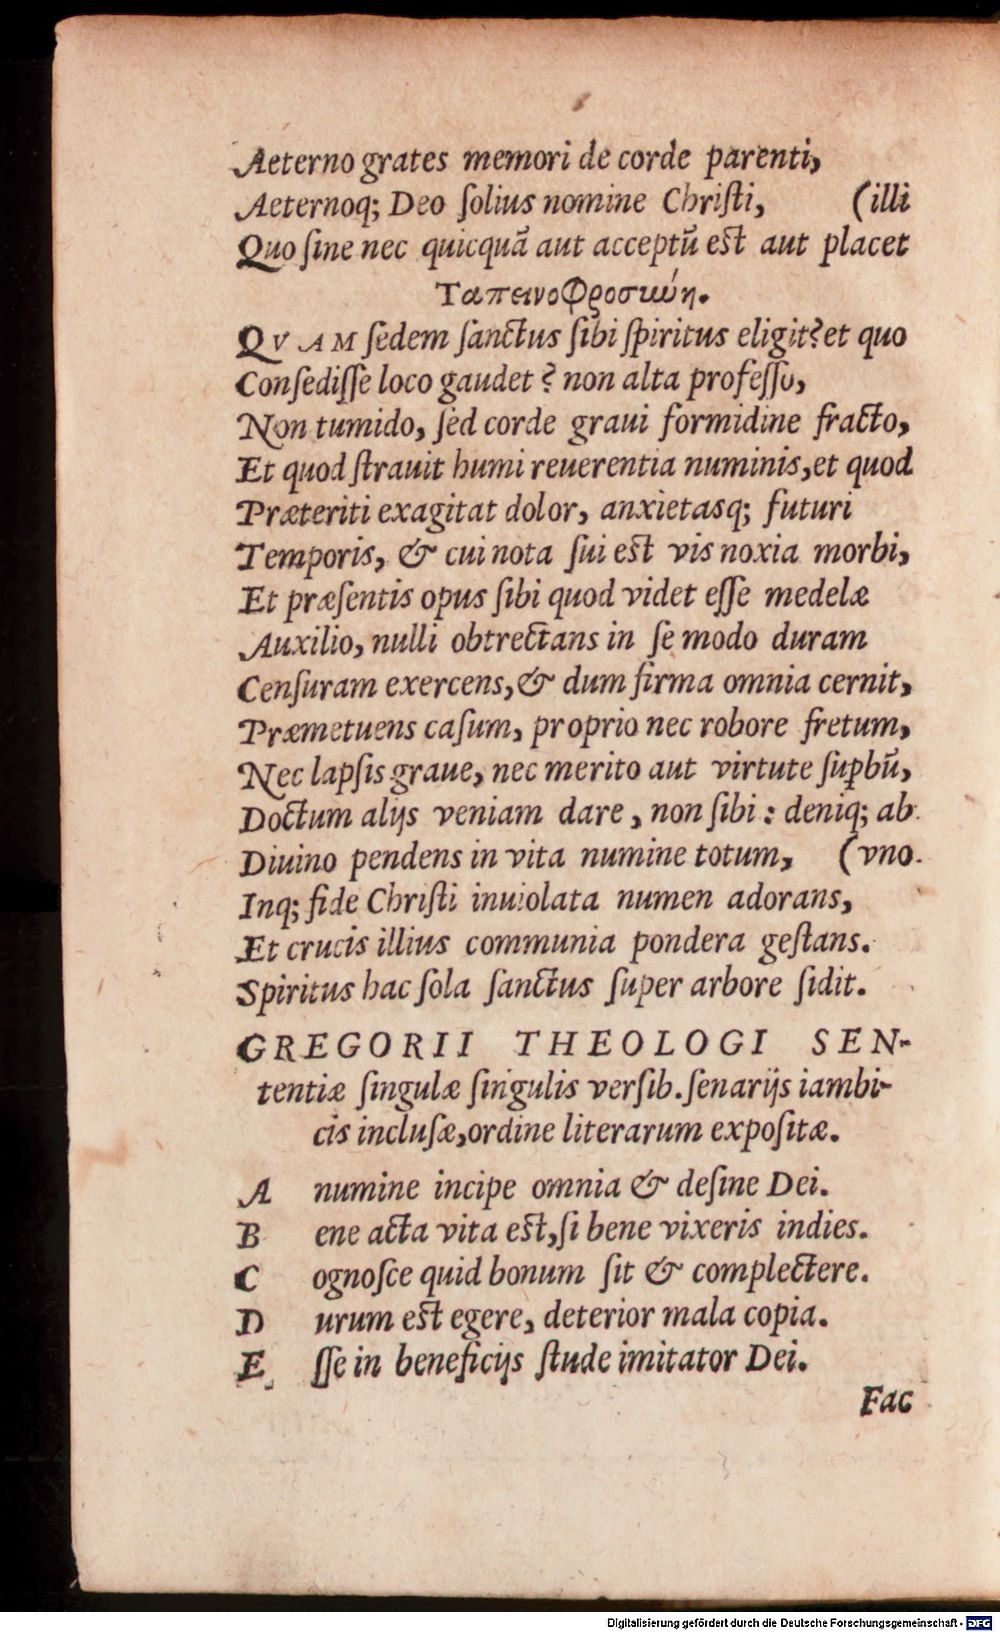 Aeterno grates memori de corde parenti,
Aeternoq; Deo ſolius nomine Chriſti, (illi
Quo ſine nec quicquã aut acceptũ eſt aut placet
Ταπεινοφροσιώη.
QVAM ſedem ſanctus ſibi ſpiritus eligit? et quo
Conſediſſe loco gaudet? non alta profeſſo,
Non tumido, ſed corde graui formidine fracto,
Et quod ſtrauit humi reuerentia numinis, et quod
Præteriti exagitat dolor, anxietasq; futuri
Temporis, & cui nota ſui eſt vis noxia morbi,
Et præſentis opus ſibi quod videt eſſe medelæ
Auxilio, nulli obtrectans in ſe modo duram
Cenſuram exercens, & dum firma omnia cernit,
Præmetuens caſum, proprio nec robore fretum,
Nec lapſis graue, nec merito aut virtute ſuꝑbũ,
Doctum alijs veniam dare, non ſibi: deniq; ab
Diuino pendens in vita numine totum, (vno.
Inq; fide Chriſti inuiolata numen adorans,
Et crucis illius communia pondera geſtans.
Spiritus hac ſola ſanctus ſuper arbore ſidit.
GREGORII THEOLOGI SEN-
tentiæ ſingulæ ſingulis verſib. ſenarijs iambi-
cis incluſæ, ordine literarum expoſitæ.
A numine incipe omnia & deſine Dei.
B ene acta vita eſt, ſi bene vixeris indies.
C ognoſce quid bonum ſit & complectere.
D urum eſt egere, deterior mala copia.
E ſſe in beneficijs ſtude imitator Dei.
Fac
Digitalisierung gefördert durch die Deutsche Forschungsgemeinschaft - DFG